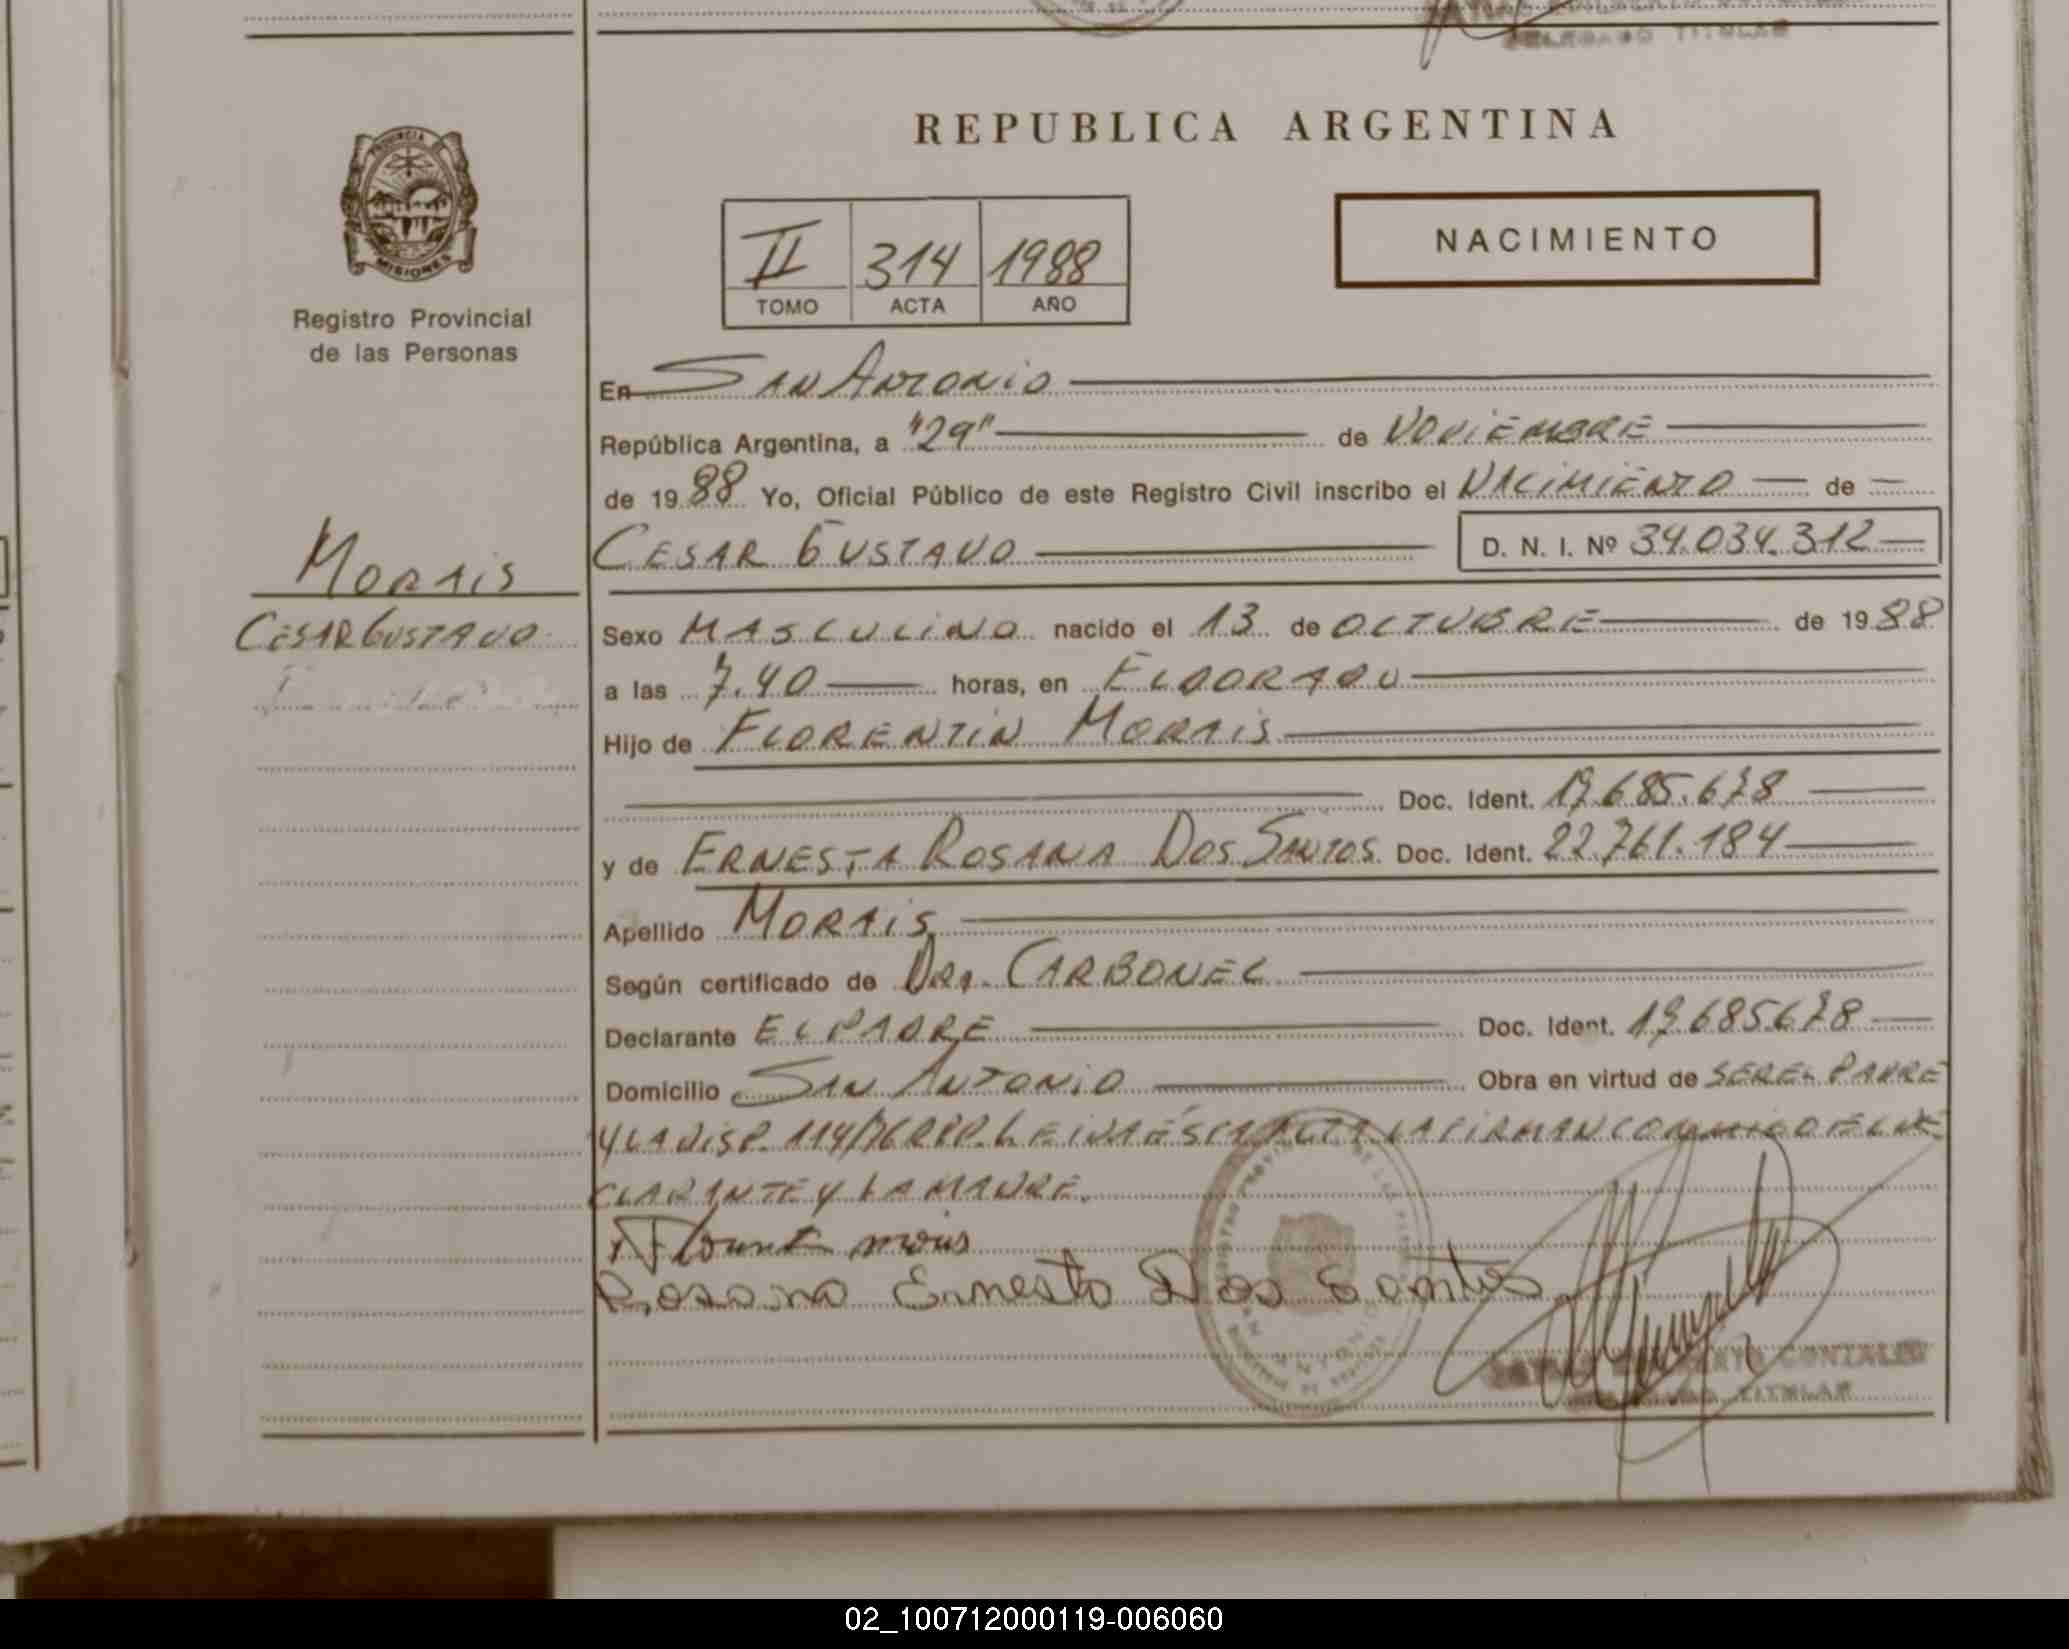 DELEGADO TITULAR
REPUBLICA ARGENTINA
PROVINCIA
MISIONES
Registro Provincial
de las Personas
II 314 1988
TOMO ACTA AÑO
NACIMIENTO
En San Antonio
República Argentina, a "29" de NOVIEMBRE
de 19 88 Yo, Oficial Público de este Registro Civil inscribo el NACIMIENTO de
CESAR GUSTAVO D. N. I. Nº 34.034.312
MORAIS
CESAR GUSTAVO
Sexo MASCULINO nacido el 13 de OCTUBRE de 19 88
a las 7.40 horas, en ELDORADO
Hijo de FLORENTIN MORAIS
Doc. Ident. 19.685.678
y de ERNESTA ROSANA DOS SANTOS Doc. Ident. 22.761.184
Apellido MORAIS
Según certificado de DRA. CARBONEL
Declarante EL PADRE Doc. Ident. 19.685.678
Domicilio SAN ANTONIO Obra en virtud de SER EL PADRE
Y LA DISP. 114/76 RPP. LEIDA ÉSTA ACTA LA FIRMAN CONMIGO EL DE
CLARANTE Y LA MADRE.
Rosana Ernesta Dos Santos
GONZALEZ
DELEGADO TITULAR
02_100712000119-006060